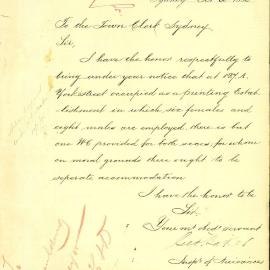 Sydney
To the Town Clerk, Sydney
Sir,
I have the honor respectfully to
bring under your notice that at 187½
York street occupied as a printing Estab
lishment in which six females and
eight males are employed, there is but
one WC provided for both sexes, for whom
on moral grounds there ought to be
separate accommodation
I have the honor to be
Sir,
Your most obdt servant
Inspr of Nuisances